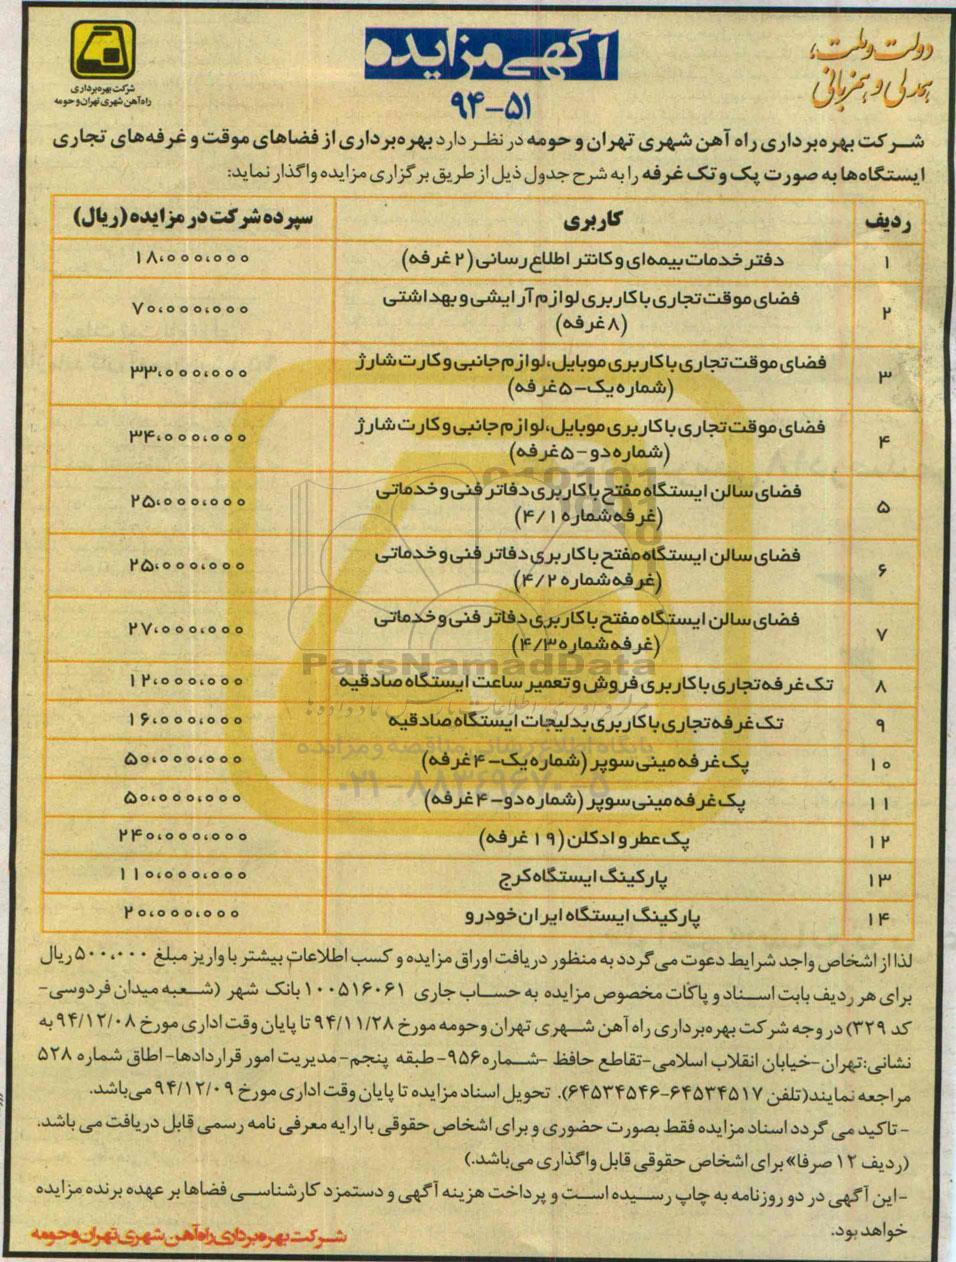 دولت و ملت،
همدلی و همزبانی
آگهی مزایده
۹۴-۵۱
شرکت بهره‌برداری
راه‌آهن شهری تهران و حومه
شرکت بهره‌برداری راه آهن شهری تهران و حومه در نظر دارد بهره‌برداری از فضاهای موقت و غرفه‌های تجاری
ایستگاه‌ها به صورت پک و تک غرفه را به شرح جدول ذیل از طریق برگزاری مزایده واگذار نماید:
ردیف کاربری سپرده شرکت در مزایده (ریال)
۱ دفتر خدمات بیمه‌ای و کانتر اطلاع رسانی (۲ غرفه) ۱۸،۰۰۰،۰۰۰
۲ فضای موقت تجاری با کاربری لوازم آرایشی و بهداشتی ۷۰،۰۰۰،۰۰۰
(۸ غرفه)
۳ فضای موقت تجاری با کاربری موبایل، لوازم جانبی و کارت شارژ ۳۳،۰۰۰،۰۰۰
(شماره یک- ۵ غرفه)
۴ فضای موقت تجاری با کاربری موبایل، لوازم جانبی و کارت شارژ ۳۴،۰۰۰،۰۰۰
(شماره دو- ۵ غرفه)
۵ فضای سالن ایستگاه مفتح با کاربری دفاتر فنی و خدماتی ۲۵،۰۰۰،۰۰۰
(غرفه شماره ۴/۱)
۶ فضای سالن ایستگاه مفتح با کاربری دفاتر فنی و خدماتی ۲۵،۰۰۰،۰۰۰
(غرفه شماره ۴/۲)
۷ فضای سالن ایستگاه مفتح با کاربری دفاتر فنی و خدماتی ۲۷،۰۰۰،۰۰۰
(غرفه شماره ۴/۳)
ParsNamadData
۸ تک غرفه تجاری با کاربری فروش و تعمیر ساعت ایستگاه صادقیه ۱۲،۰۰۰،۰۰۰
۹ تک غرفه تجاری با کاربری بدلیجات ایستگاه صادقیه ۱۶،۰۰۰،۰۰۰
پایگاه اطلاع رسانی مناقصه و مزایده
۱۰ پک غرفه مینی سوپر (شماره یک- ۴ غرفه) ۵۰،۰۰۰،۰۰۰
۰۲۱-۸۸۳۴۹۶۷۰-۵
۱۱ پک غرفه مینی سوپر (شماره دو- ۴ غرفه) ۵۰،۰۰۰،۰۰۰
۱۲ پک عطر و ادکلن (۱۹ غرفه) ۲۴۰،۰۰۰،۰۰۰
۱۳ پارکینگ ایستگاه کرج ۱۱۰،۰۰۰،۰۰۰
۱۴ پارکینگ ایستگاه ایران خودرو ۲۰،۰۰۰،۰۰۰
لذا از اشخاص واجد شرایط دعوت می‌گردد به منظور دریافت اوراق مزایده و کسب اطلاعات بیشتر با واریز مبلغ ۵۰۰،۰۰۰ ریال
برای هر ردیف بابت اسناد و پاکات مخصوص مزایده به حساب جاری ۱۰۰۵۱۶۰۶۱ بانک شهر (شعبه میدان فردوسی-
کد ۳۲۹) در وجه شرکت بهره‌برداری راه آهن شهری تهران و حومه مورخ ۹۴/۱۱/۲۸ تا پایان وقت اداری مورخ ۹۴/۱۲/۰۸ به
نشانی: تهران-خیابان انقلاب اسلامی-تقاطع حافظ -شماره ۹۵۶- طبقه پنجم- مدیریت امور قراردادها- اطاق شماره ۵۲۸
مراجعه نمایند (تلفن ۶۴۵۳۴۵۱۷-۶۴۵۳۴۵۴۶). تحویل اسناد مزایده تا پایان وقت اداری مورخ ۹۴/۱۲/۰۹ می‌باشد.
- تاکید می گردد اسناد مزایده فقط بصورت حضوری و برای اشخاص حقوقی با ارایه معرفی نامه رسمی قابل دریافت می باشد.
(ردیف ۱۲ صرفا» برای اشخاص حقوقی قابل واگذاری می‌باشد.)
-این آگهی در دو روزنامه به چاپ رسیده است و پرداخت هزینه آگهی و دستمزد کارشناسی فضاها بر عهده برنده مزایده
خواهد بود.
شرکت بهره‌برداری راه‌آهن شهری تهران و حومه